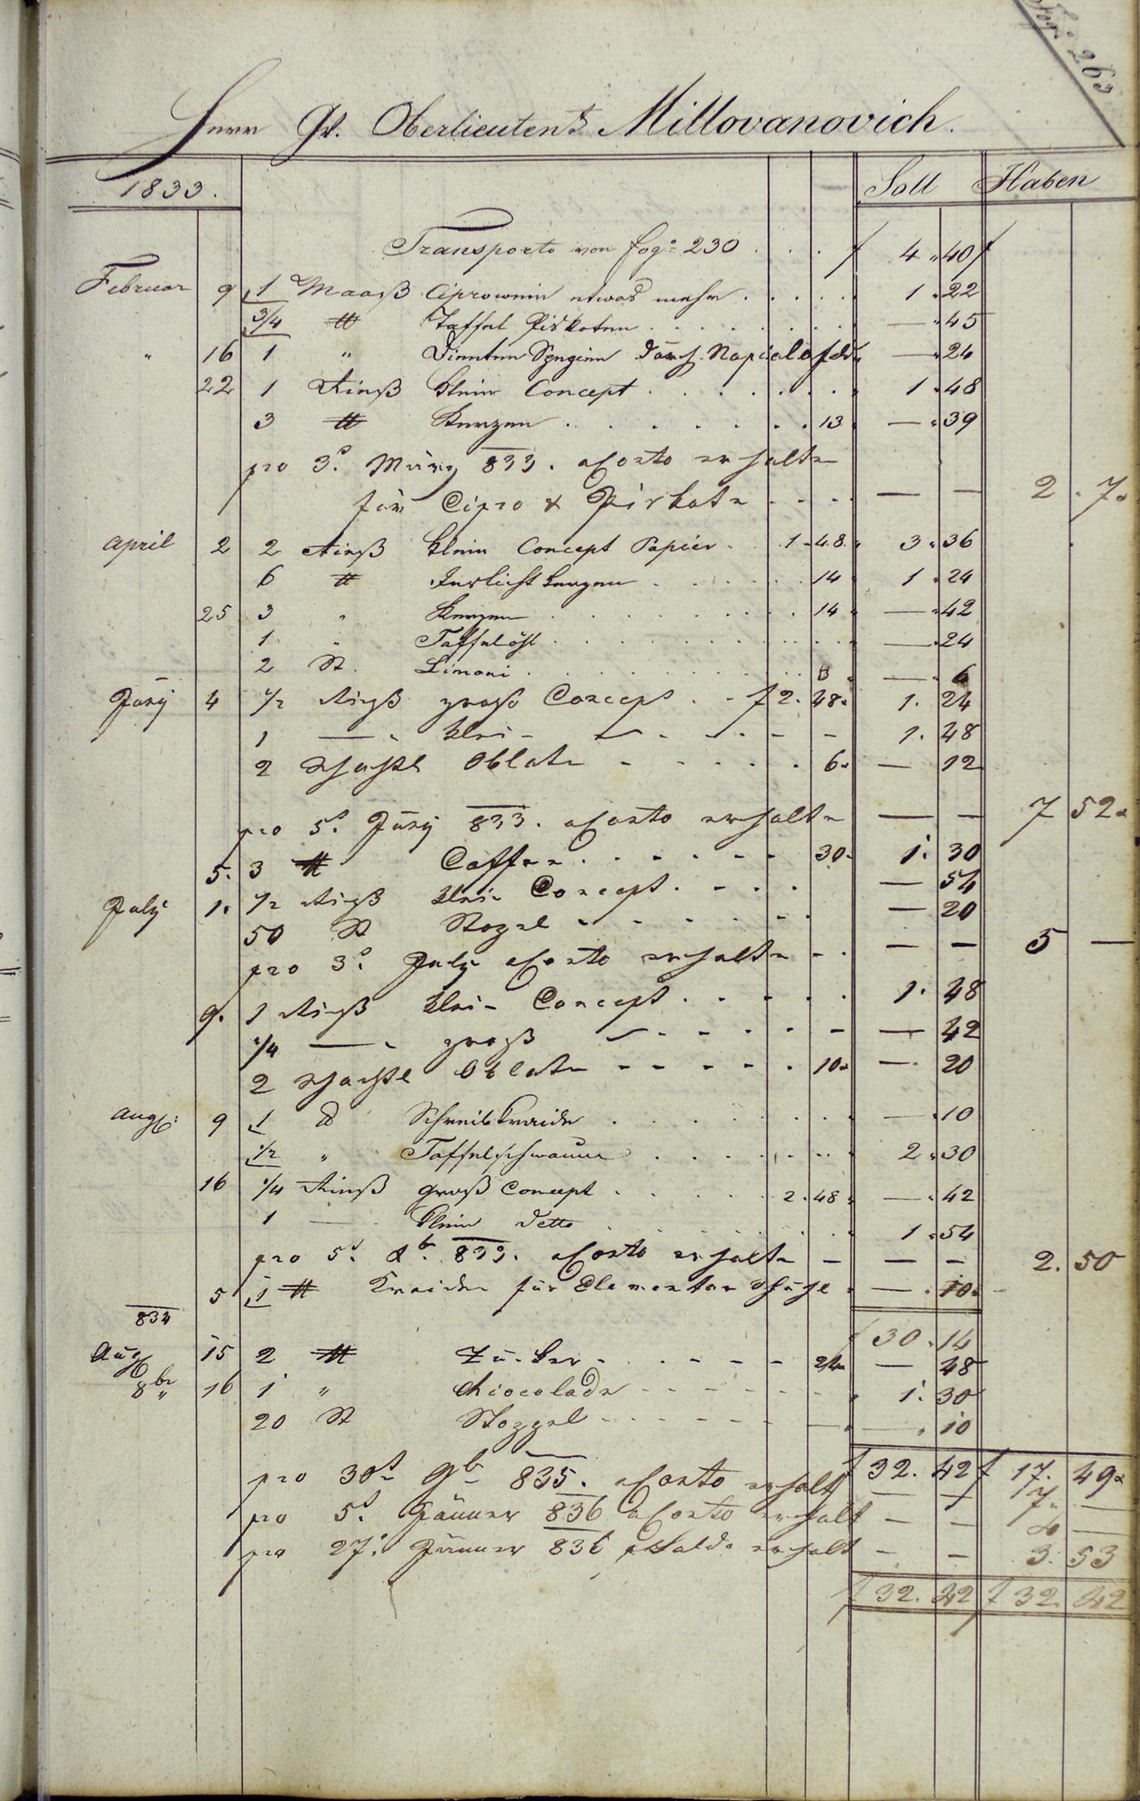 Fog: 263
Herr Gr. Oberlieutent Millovanovich.
1833. Soll Haben
Transporto von fog: 230 . . . f 4 . 40 f
Februar 9 1 Maaß Ciprowein etwas mehr . . . . . 1 . 22
3/4 ℔ Taffel Piskoten . . . . . — . 45
" 16 1 " — . 24
22 1 Rieß klein Concept . . . . . 1 . 48
3 ℔ Kerzen . . . . . 13 — . 39
pro 3t. März 833. aConto erhalten
für Cipro & Piskoten . . . — — 2 . 7.
April 2 2 Rieß klein Concept Papier . 1 . 48 . 3 . 36
6 ℔ Inslicht Kerzen . . . . . 14 1 . 24
25 3 " Kerzen . . . . . 14 . — . 42
1 " Taffelöhl . . . . . — . 24
2 St. Limoni . . . . . 3 . — . 6
Juny 4 1/2 Rieß groß Concept . - f 2 . 48. 1 . 24
1 — " klein — " - - - - 1 . 48
2 Schachtl Oblaten - - - - - 6. — 12
pro 5t. Juny 833. aConto erhalten — — 7 52.
5. 3 ℔ Caffee . . - - - 30. 1 . 30
July 1. 1/2 Rieß klein Concept . - - . — 54
50 St Stopel - - - - - — 20
pro 3t. July aConto erhalten - . — — 5 —
9. 1 Rieß klein Concept . . - . . 1 . 48
1/4 — " groß " - - - - - — 42
2 Schachtl Oblaten - - - - . 10. — . 20
Augt. 9 1 ℔ Schreibkreide . . . . . — . 10
1/2 " Taffelschwamm . . . . . 2 . 30
16 1/4 Rieß groß Concept . . . . . 2 . 48 . — . 42
1 — klein detto . . . . . 1 . 54
pro 5t. 8br. 833. aConto erhalten - — — 2 . 50
5 1 ℔ Kreiden für Elementar Schule . — . 10.
834 f 30 . 14
Aug 15 2 ℔ Zucker - . . - - - 24 — 48
8br " 16 1 " Chiocolade - - - - - 1 . 30
20 St Stoppel - - - - - — . 10
f 32 . 42 f 17 . 49.
pro 30t. 9br 835. aConto erhalt — — 7 . —
pro 5t. Jänner 836 aConto erhalt — — —
pro 27. Jänner 836 pSaldo erhalt — — 3 . 53
f 32 . 42 f 32 . 42